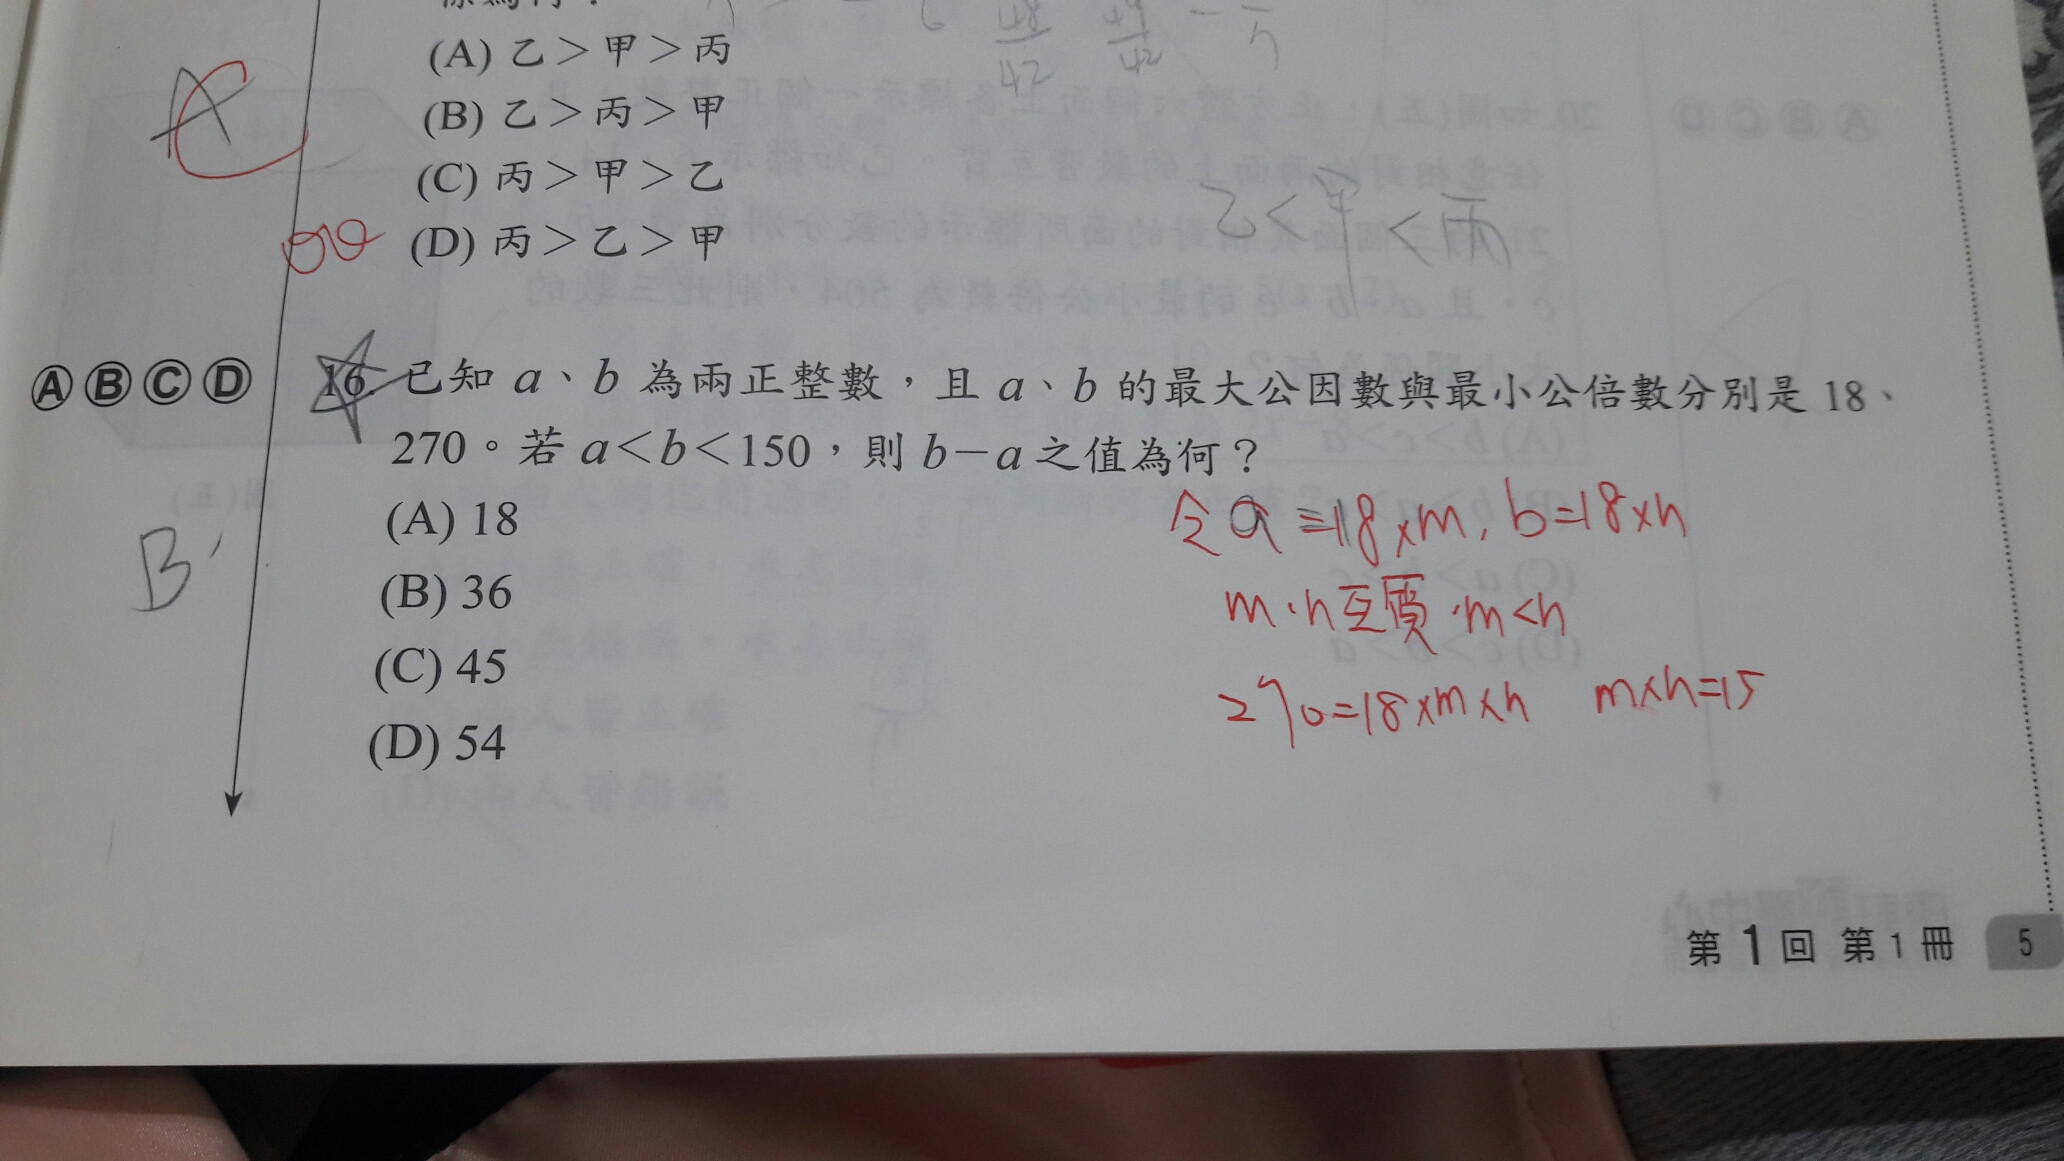 (A) 乙＞甲＞丙
(B) 乙＞丙＞甲
(C) 丙＞甲＞乙
(D) 丙＞乙＞甲
A
48/42
49/42
乙<甲<丙
Ⓐ Ⓑ Ⓒ Ⓓ
16. 已知 a、b 為兩正整數，且 a、b 的最大公因數與最小公倍數分別是 18、
270。若 a＜b＜150，則 b－a 之值為何？
(A) 18
(B) 36
(C) 45
(D) 54
B
令a=18×m, b=18×n
m、n互質，m<n
270=18×m×n m×n=15
第 1 回 第 1 冊 5